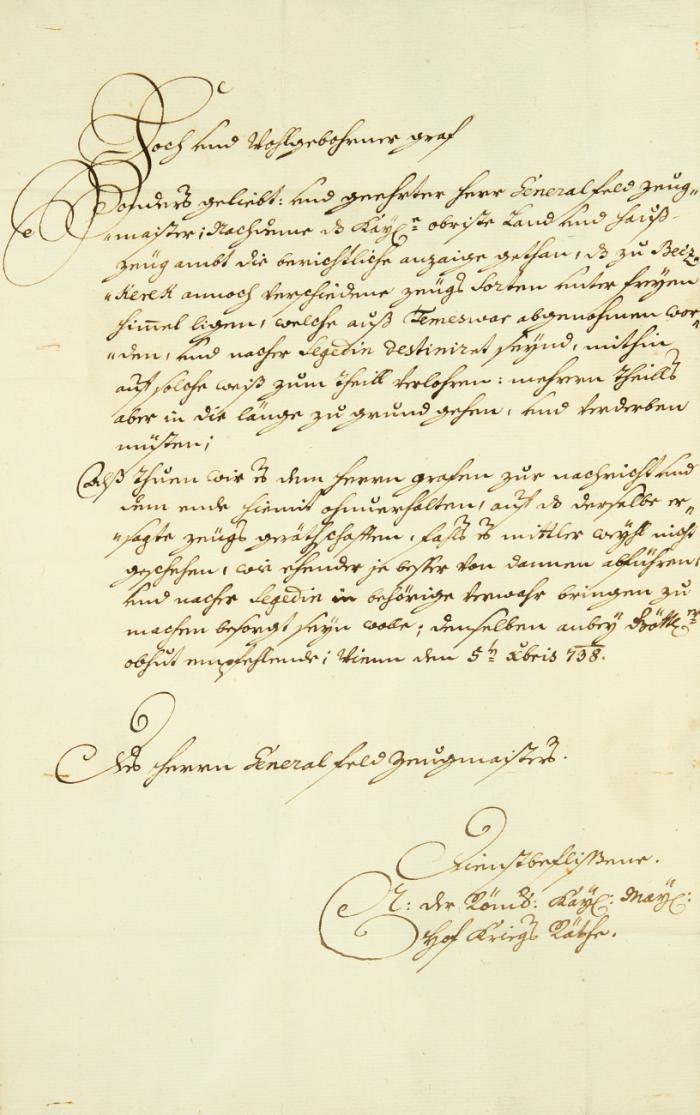 Hoch und Wohlgebohrner graf
Sonders geliebt: und geehrter Herr General feld zeug-
-maister; Nachdeme dz Kay: obriste Land und Hauß-
zeug ambt die berichtliche anzaige gethan, dz zu Becz-
-kerek annoch verschiedene zeugs Sorten unter freyen
himmel ligen, welche auß Temeswar abgenohmen wor-
-den, und nacher Segedin destiniret seynd, mithin
auf solche weiß zum theill verlohren: mehrern theills
aber in die länge zu grund gehen, und verderben
müsten;
Alß thuen wir es dem herrn grafen zur nachricht und
dem ende hiemit ohnverhalten, auf dz derselbe er-
-sagte zeugs geräthschafften, fahls es mittler weyll nicht
geschehen, wie ehender je besser von dannen abführen,
und nacher Segedin in behörige verwahr bringen zu
machen besorgt seyn wolle; denselben anbey Göttl:er
obhut empfehlende; Wienn den 5tn Xbris 738.
Des Herrn General feld zeugmaisters.
Dienstbeflißene.
N: der Röm: Kay: May:
Hof Kriegs Räthe.